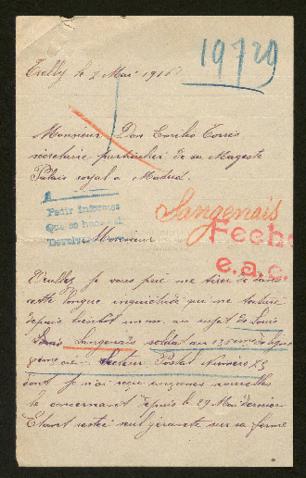 19729
Trelly le 2 Mai 1916
Monsieur Don Emilio Torrès
secretaire particulier de sa Magesté
Palais royal a Madrid
Pedir informes
Que se haga
Devolver
Langenais
Fecho
e.a.c.
Monsieur
Veuillez je vous prie me tirer de
cette longue inquiétude qui me
depuis un an au sujet de Louis
Langenais soldat au 136 eme de ligne
Secteur Postal Numéro 75
dont je n'ai reçu aucunes nouvelles
le concernant depuis le 29 Mai dernier
Etant restée seul gérante sur sa ferme